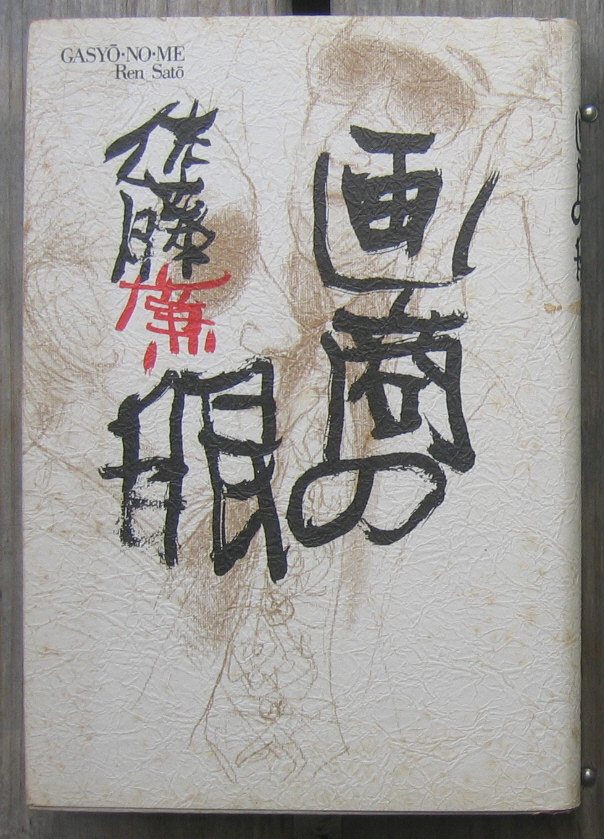 GASYŌ・NO・ME
Ren Satō
画商の
眼
佐藤
廉